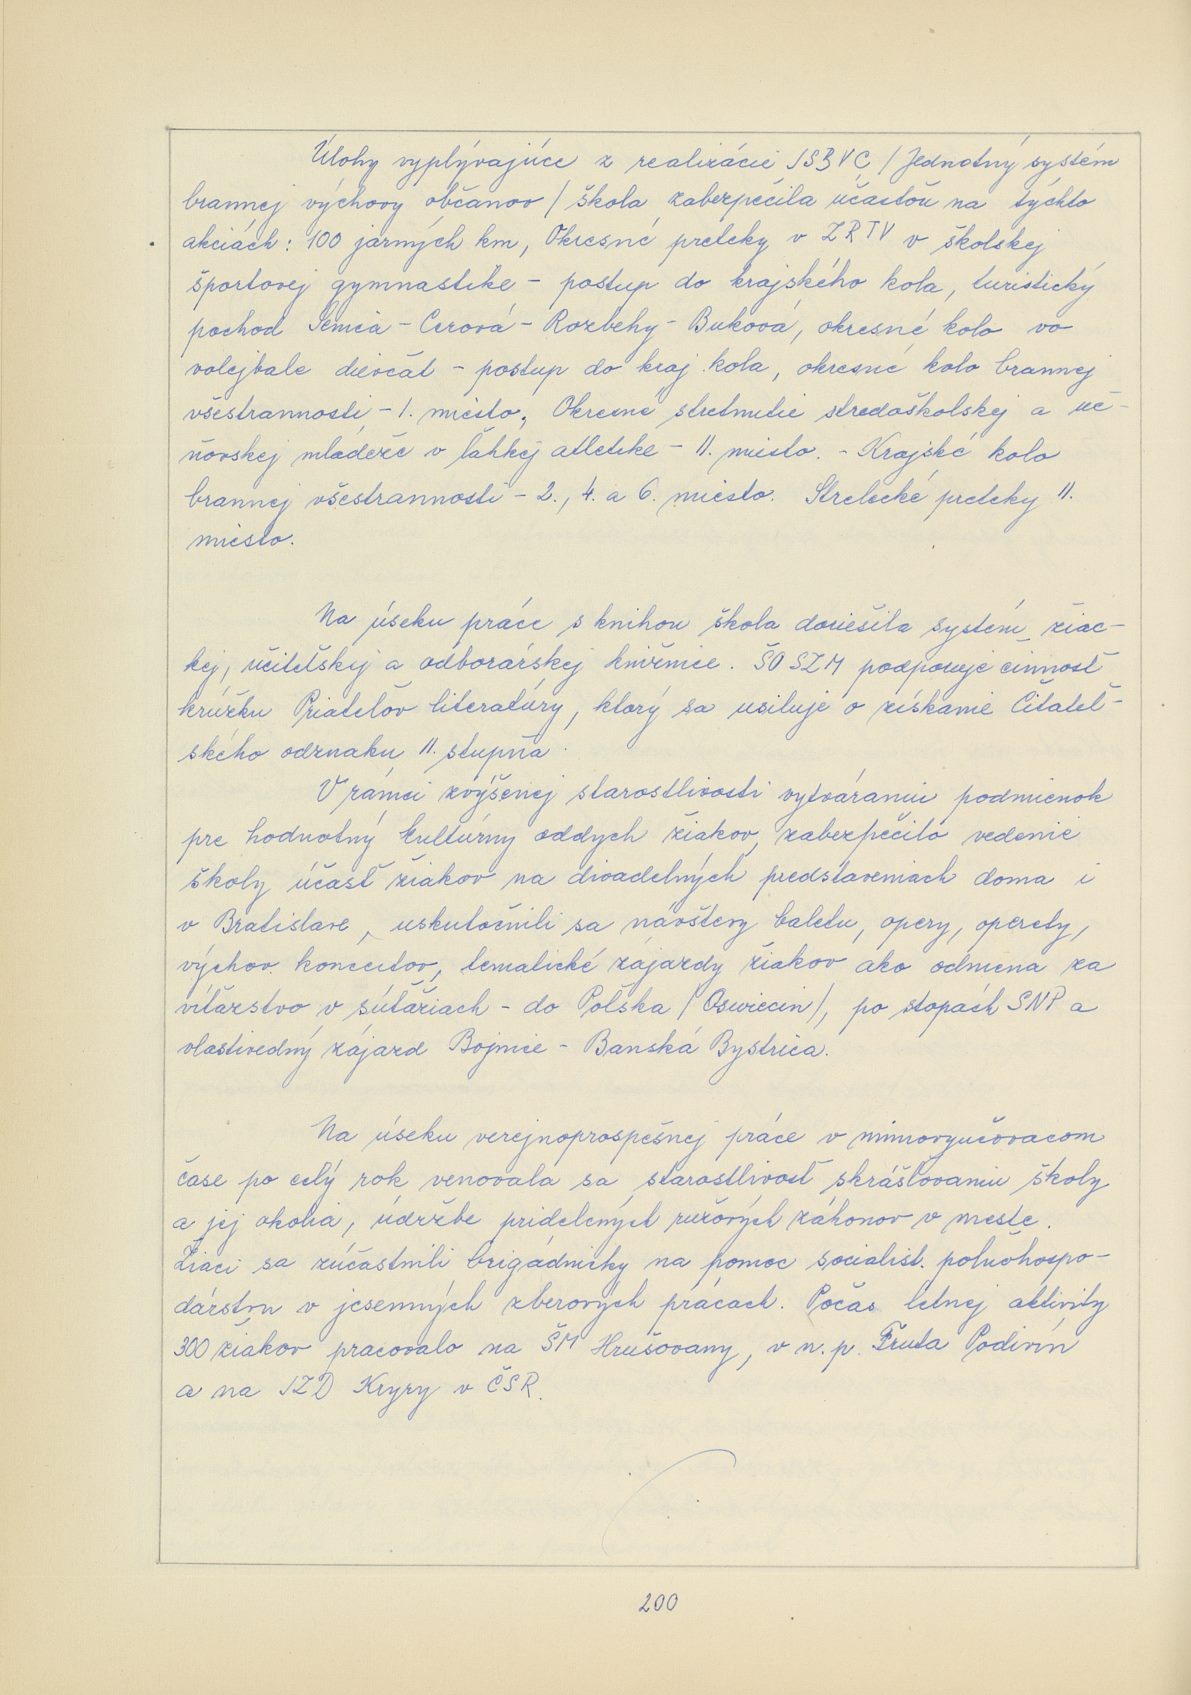 Úlohy vyplývajúce z realizácie JSBVO / Jednotný systém
brannej výchovy občanov / škola zabezpečila účasťou na týchto
akciách: 100 jarných km, Okresné preteky v ZRTV v školskej
športovej gymnastike - postup do krajského kola, turistický
pochod Jemča - Cerová - Rozbehy - Buková, okresné kolo vo
volejbale dievčat - postup do kraj. kola, okresné kolo brannej
všestrannosti - 1. miesto, Okresné stretnutie stredoškolskej a uč-
ňovskej mládeže v ľahkej atletike - II. miesto. - Krajské kolo
brannej všestrannosti - 2., 4. a 6. miesto. Strelecké preteky II.
miesto.
Na úseku práce s knihou škola doriešila systém žiac-
kej, učiteľskej a odborárskej knižnice. ŠO SZM podporuje činnosť
krúžku Priateľov literatúry, ktorý sa usiluje o získanie Čitateľ-
ského odznaku II. stupňa.
V rámci zvýšenej starostlivosti vytváraniu podmienok
pre hodnotný kultúrny oddych žiakov, zabezpečilo vedenie
školy účasť žiakov na divadelných predstaveniach doma i
v Bratislave, uskutočnili sa návštevy baletu, opery, operety,
výchov. koncertov, tematické zájazdy žiakov ako odmena za
víťazstvo v súťažiach - do Poľska / Oswiecin /, po stopách SNP a
vlastivedný zájazd Bojnice - Banská Bystrica.
Na úseku verejnoprospešnej práce v mimovyučovacom
čase po celý rok venovala sa starostlivosť skrášľovaniu školy
a jej okolia, údržbe pridelených ružových záhonov v meste.
Žiaci sa zúčastnili brigádnicky na pomoc socialist. poľnohospo-
dárstvu v jesenných zberových prácach. Počas letnej aktivity
300 žiakov pracovalo na ŠM Hrušovany, v n. p. Fruta Podivín
a na JZD Kryry v ČSR.
200